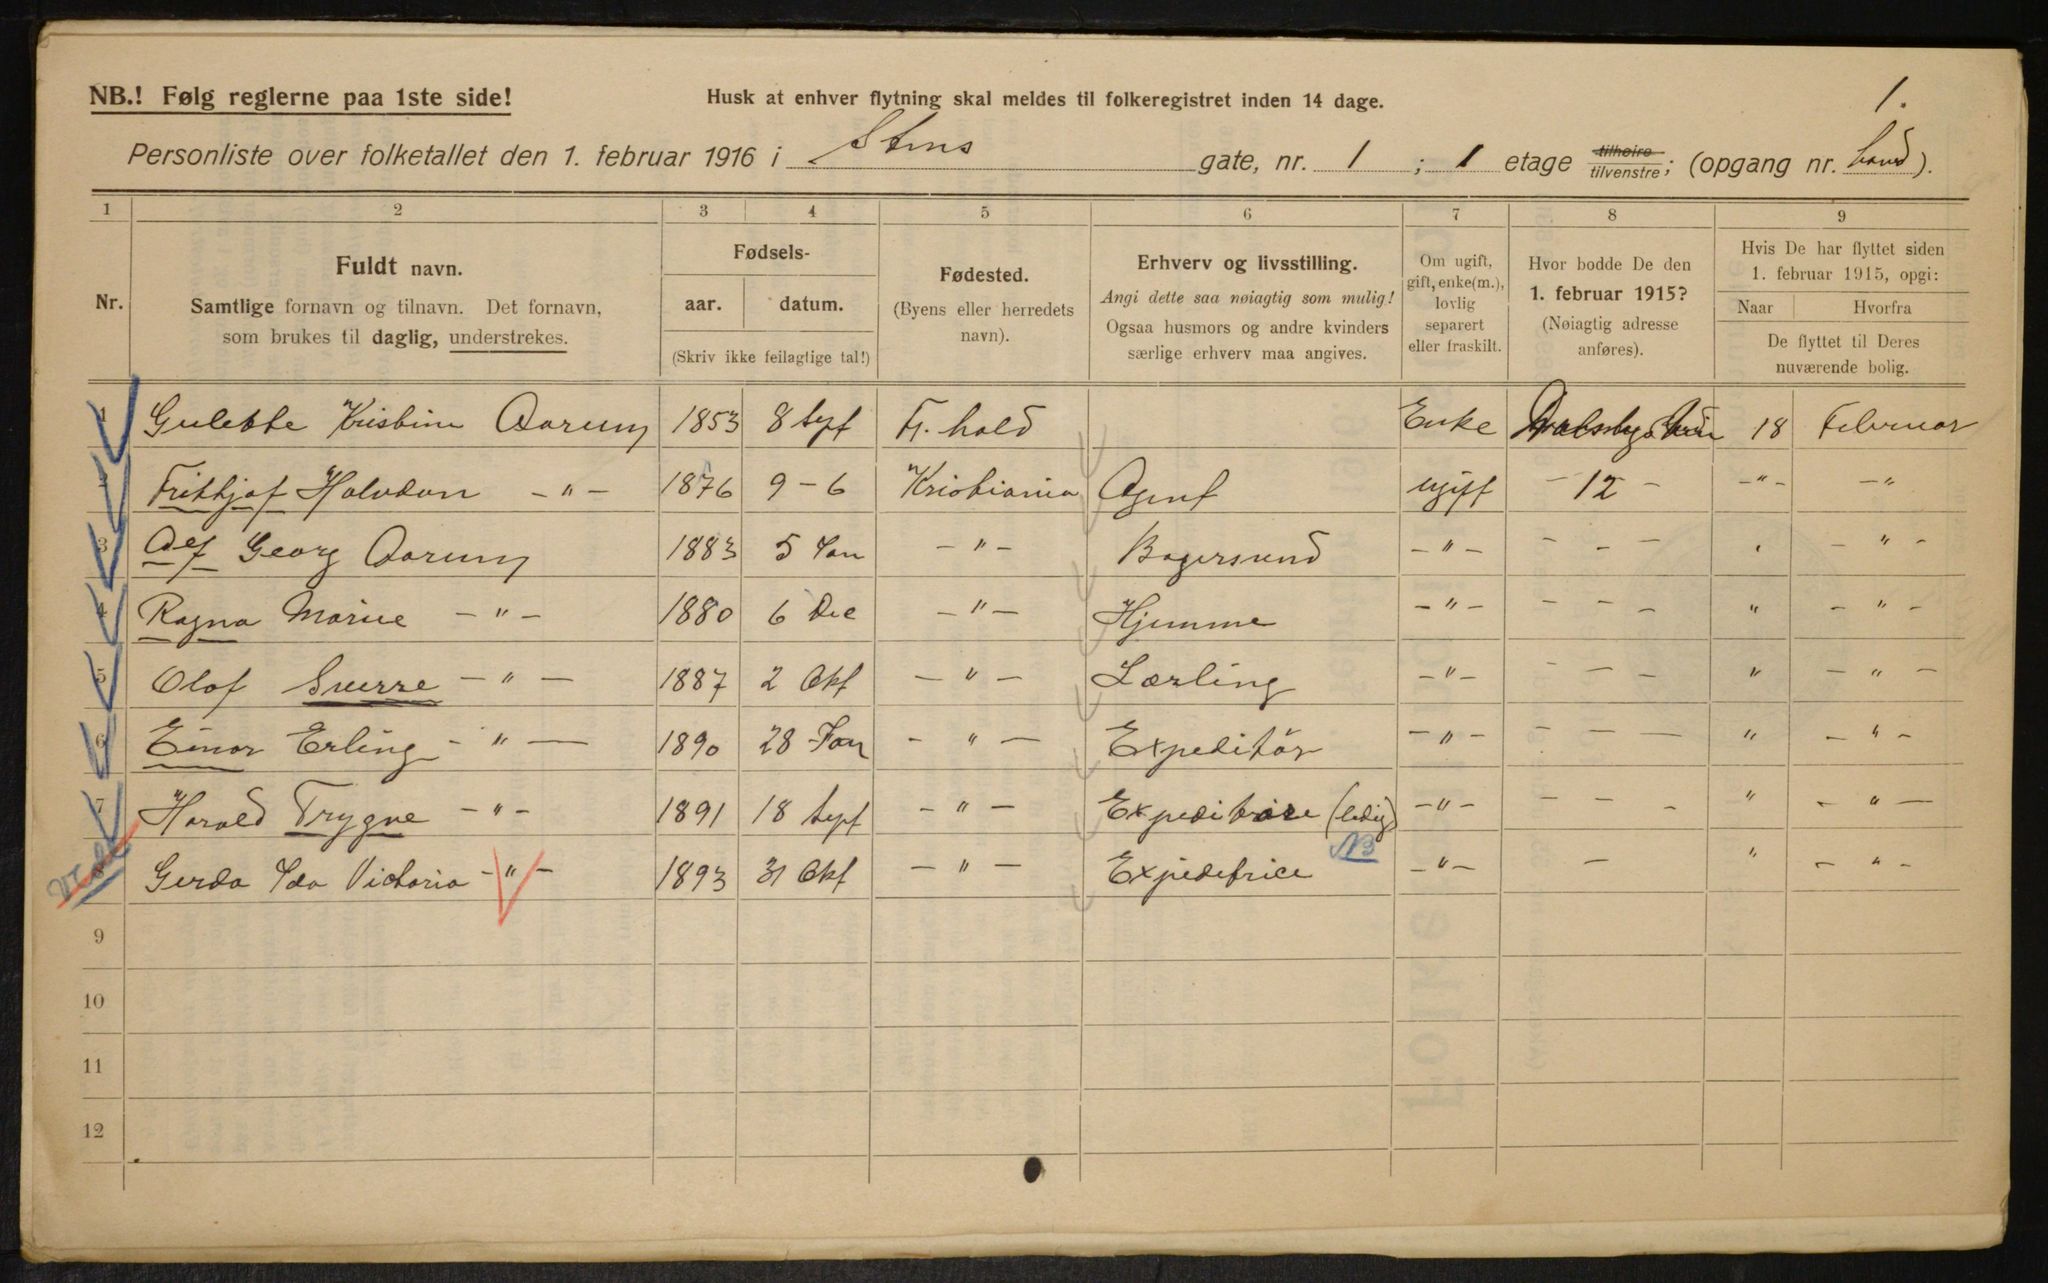 1.
NB.! Følg reglerne paa 1ste side!
Husk at enhver flytning skal meldes til folkeregistret inden 14 dage.
Personliste over folketallet den 1. februar 1916 i Stens gate, nr. 1 ; 1 etage tilhøire tilvenstre; (opgang nr. ).
1 2 3 4 5 6 7 8 9
Nr.
Fuldt navn.
Samtlige fornavn og tilnavn. Det fornavn,
som brukes til daglig, understrekes.
Fødsels-
aar. datum.
(Skriv ikke feilagtige tal!)
Fødested.
(Byens eller herredets
navn).
Erhverv og livsstilling.
Angi dette saa nøiagtig som mulig!
Ogsaa husmors og andre kvinders
særlige erhverv maa angives.
Om ugift,
gift, enke(m.),
lovlig
separert
eller fraskilt.
Hvor bodde De den
1. februar 1915?
(Nøiagtig adresse
anføres).
Hvis De har flyttet siden
1. februar 1915, opgi:
Naar Hvorfra
De flyttet til Deres
nuværende bolig.
1 Gulette Kristine Aarum 1853 8 Sept Fr. hald Enke 18 Februar
2 Frithjof Halvdan -"- 1876 9-6 Kristiania Agent ugift - 12 - -"- -"
3 Alf Georg Aarum 1883 5 Jan -"- Bagersvend -"- - - - - " -
4 Ragna Marie -"- 1880 6 Dec -"- Hjemme -"- - - - " - " -
5 Olaf Sverre -"- 1887 2 Okt -"- Lærling -"- - - - " - " -
6 Einar Erling -"- 1890 28 Jan -"- Expeditør -"- - - - " - " -
7 Harald Trygve -"- 1891 18 Sept -"- Expeditrise (ledig) -"- - - - " - " -
8 Gerda Ida Victoria -"- 1893 31 Okt -"- Expeditrice NB -"- - " - " -
9
10
11
12